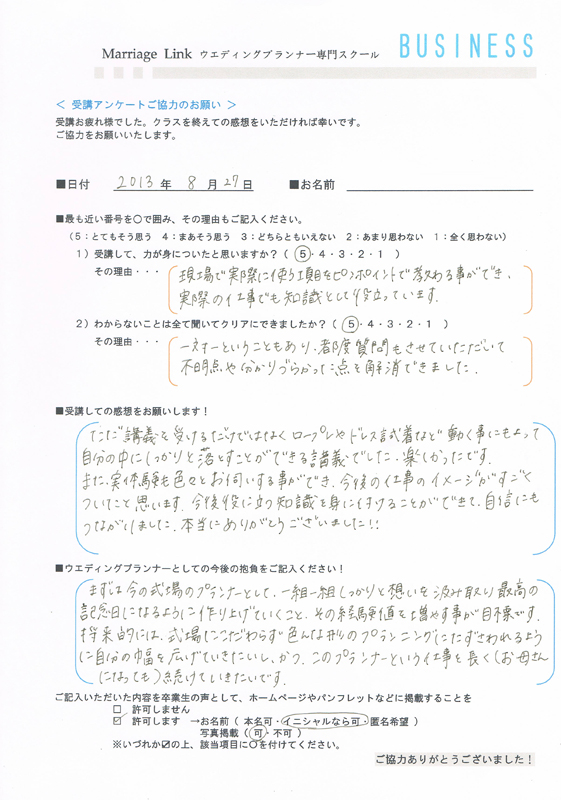 Marriage Link ウエディングプランナー専門スクール BUSINESS
＜ 受講アンケートご協力のお願い ＞
受講お疲れ様でした。クラスを終えての感想をいただければ幸いです。
ご協力をお願いいたします。
■日付 2013年 8月27日 ■お名前
■最も近い番号を〇で囲み、その理由もご記入ください。
（5：とてもそう思う 4：まあそう思う 3：どちらともいえない 2：あまり思わない 1：全く思わない）
1）受講して、力が身についたと思いますか？（ 5・4・3・2・1 ）
その理由・・・ 現場で実際に使う項目をピンポイントで教わる事ができ、
実際の仕事でも知識として役立っています。
2）わからないことは全て聞いてクリアにできましたか？（ 5・4・3・2・1 ）
その理由・・・ 一対一ということもあり、都度質問もさせていただいて
不明点や分かりづらかった点を解消できました。
■受講しての感想をお願いします！
ただ講義を受けるだけではなくロープレやドレス試着など動く事によって
自分の中にしっかりと落とすことができる講義でした。楽しかったです。
また、実体験も色々とお伺いする事ができ、今後の仕事のイメージがすごく
ついたこと思います。今後役に立つ知識を身に付けることができて、自信にも
つながりました。本当にありがとうございました!!
■ウエディングプランナーとしての今後の抱負をご記入ください！
まずは今の式場のプランナーとして、一組一組しっかりと想いを汲み取り最高の
記念日になるように作り上げていくこと、その経験値を増やす事が目標です。
将来的には、式場にこだわらず色んな形のプランニングにたずさわれるよう
に自分の幅を広げていきたいし、かつ、このプランナーという仕事を長く(お母さん
になっても)続けていきたいです。
ご記入いただいた内容を卒業生の声として、ホームページやパンフレットなどに掲載することを
□ 許可しません
☑ 許可します →お名前（ 本名可・イニシャルなら可・匿名希望 ）
写真掲載（ 可・不可 ）
※いづれか☑の上、該当項目に〇を付けてください。
ご協力ありがとうございました！